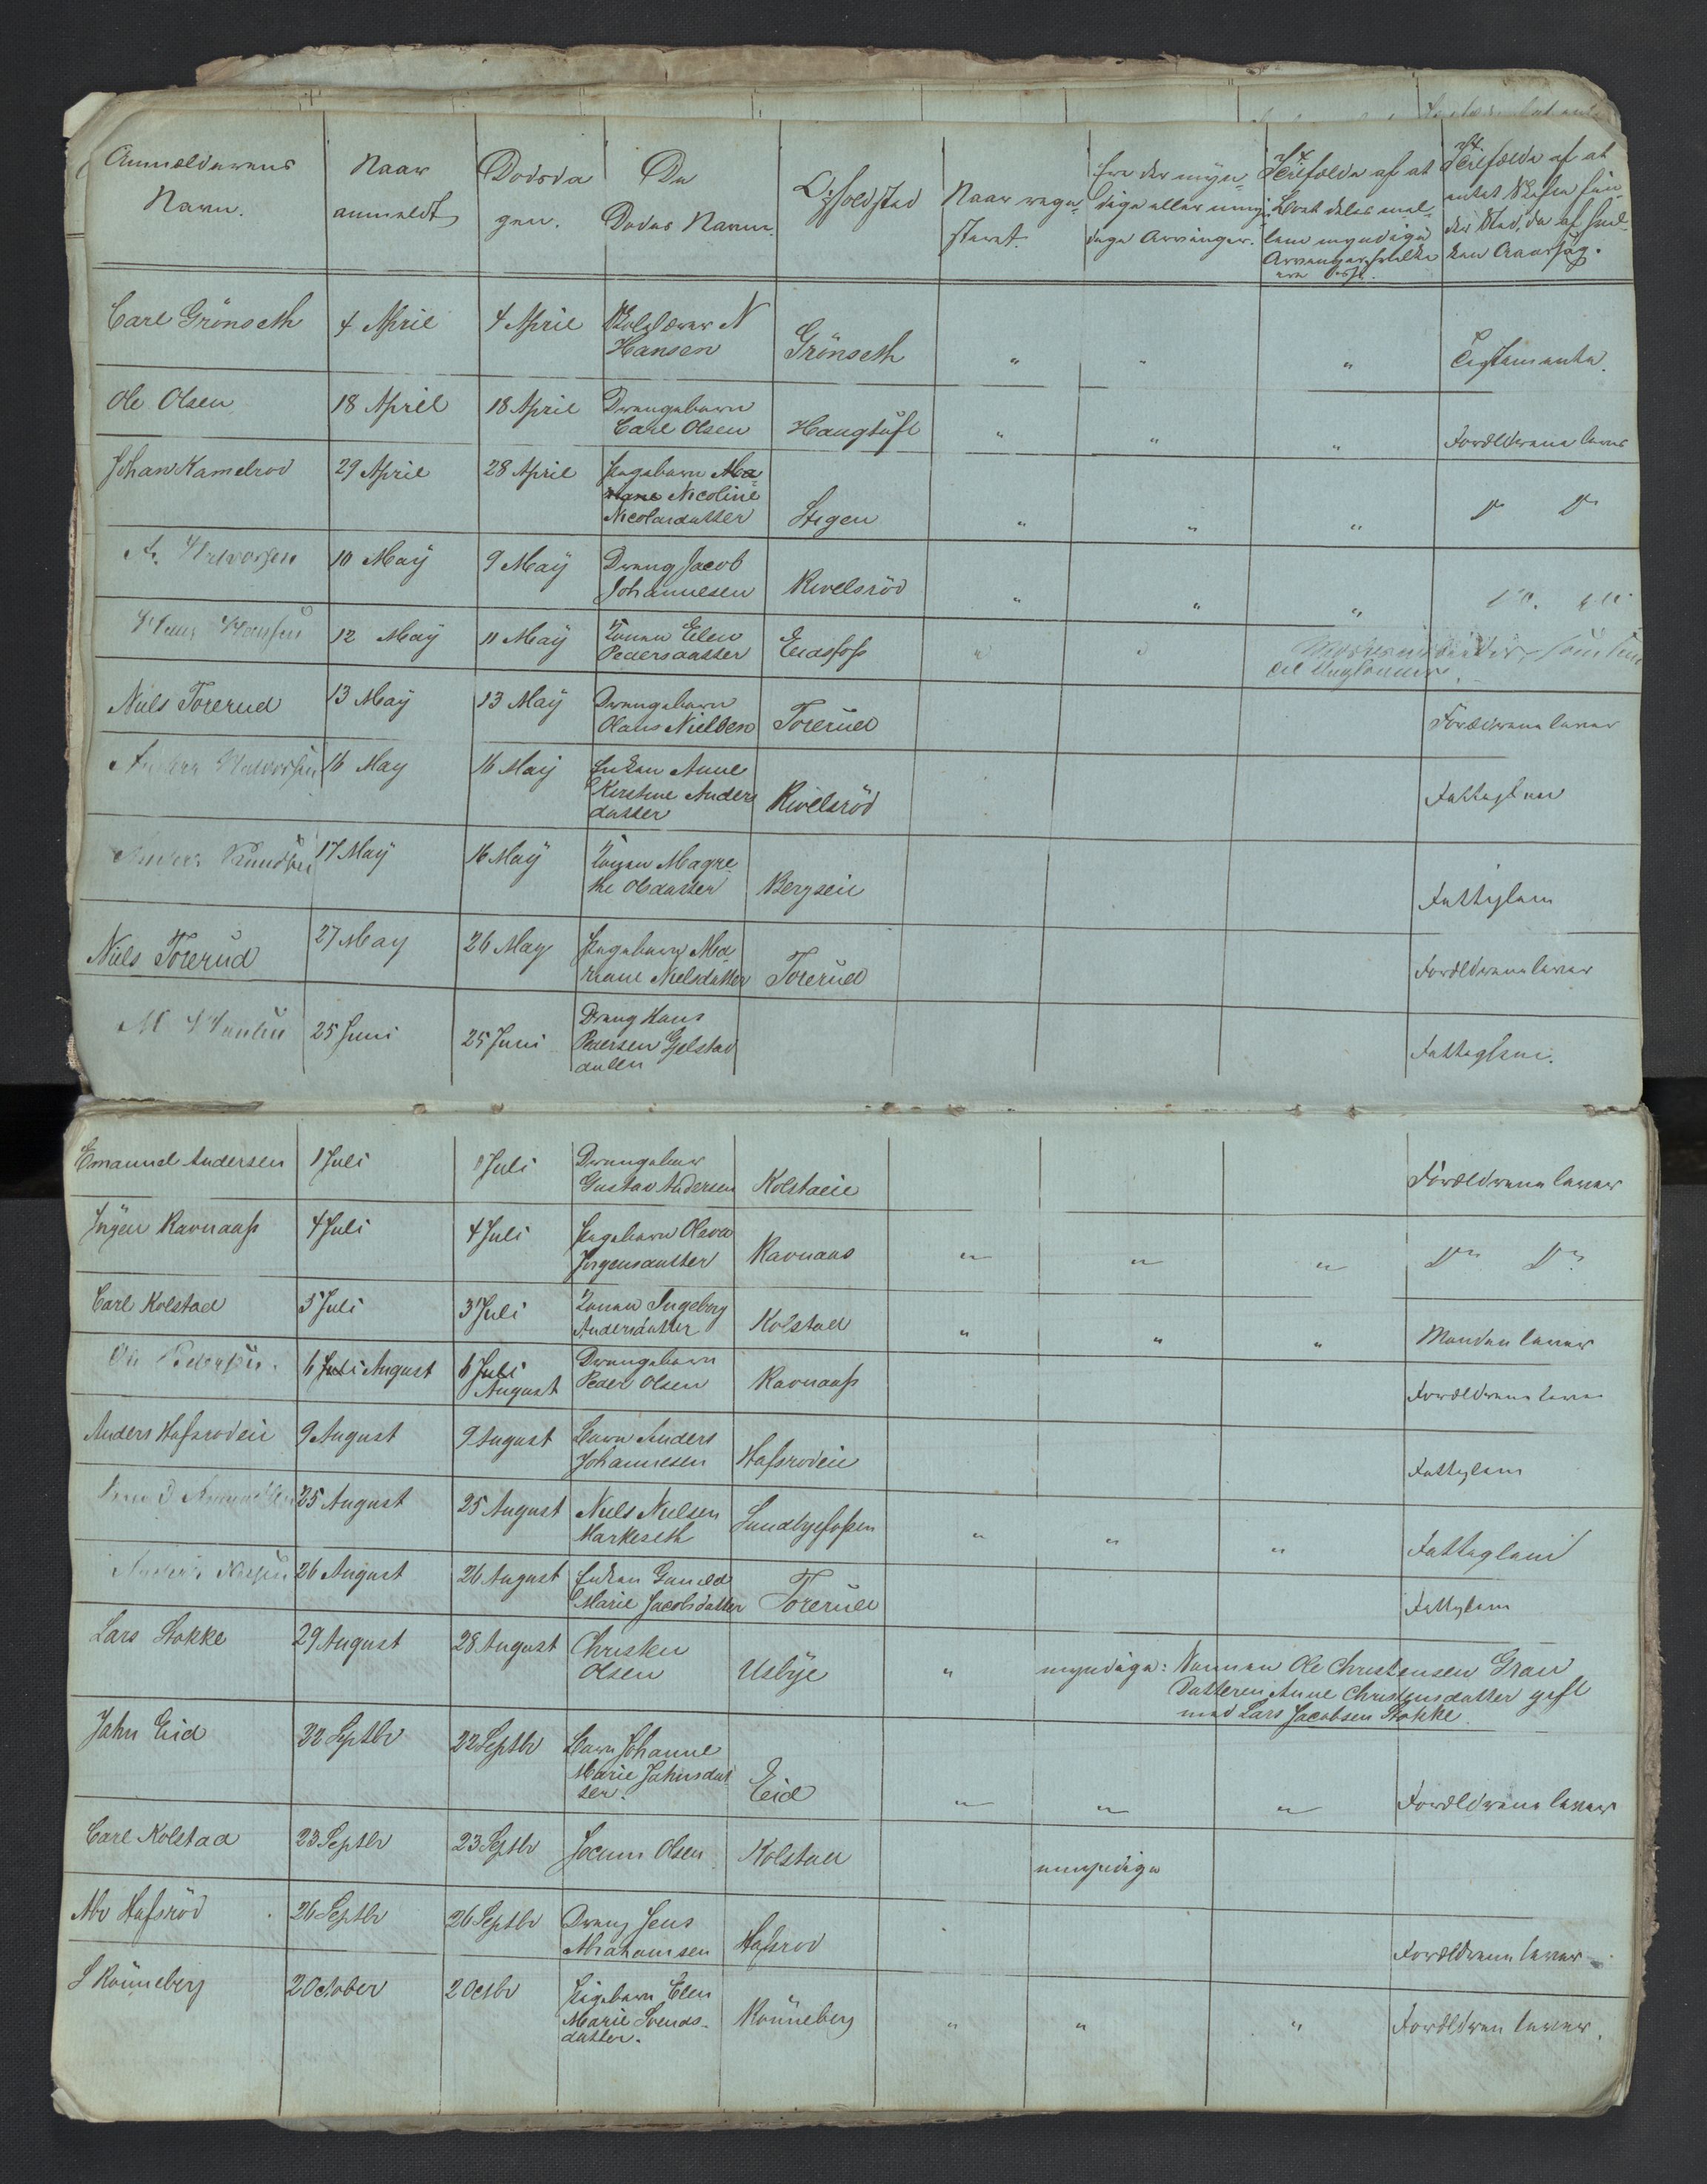 Anmelderens Navn. | Naar anmeldt | Dödsda gen. | De Dödes Navne. | Opholdsted | Naar regi- streret. | Ere der myn- dige eller umyn- dige Arvinger. | I Tilfælde af at Boet deles mel- lem myndige Arvinger, hvilke ere disse. | I Tilfælde af at intet Skifte fin- der Sted, da af hvil- ken Aarsag.
Carl Grönseth | 4 April | 4 April | Skolelærer N Hansen | Grönseth | " | " | " | Testamente.
Ole Olsen | 18 April | 18 April | Drengebarn Carl Olsen | Haugtuft | " | " | " | Forældrene lever
Johan Kamelrod | 29 April | 28 April | Pigebarn Ma- riane Nicoline Nicolaidatter | Stigen | " | " | " | Do Do
A. Halvorsen | 10 Maÿ | 9 Maÿ | Dreng Jacob Johannesen | Kivelsröd | " | " | " | Do. Do
Hans Hansen | 12 Maÿ | 11 Maÿ | Konen Elen Pedersdatter | Eidsfoss | " | "
Niels Torerud | 13 Maÿ | 13 Maÿ | Drengebarn Olaus Nielsen | Torerud | Forældrene lever
Anders Halvorsen | 16 May | 16 Maÿ | Enken Anne Kirstine Anders datter | Kivelsröd | Fattiglem
Anders Knudsen | 17 Maÿ | 16 Maÿ | Konen Magre- the Olsdatter | Bergseie | Fattiglem
Niels Torerud | 27 May | 26 May | Pigebarn Ma- riane Nielsdatter | Torerud | Forældrene lever
M Hansen | 25 Juni | 25 Juni | Dreng Hans Pedersen Gjelstad dalen | Fattiglem.
Emanuel Andersen | 1 Juli | 1 Juli | Drengebarn Gustav Andersen | Kolstadeie | Forældrene lever
Jrgen Ravnaas | 4 Juli | 4 Juli | Pigebarn Oleva Jrgensdatter | Ravnaas | " | " | " | Do Do
Carl Kolstad | 5 Juli | 3 Juli | Konen Ingeborg Andersdatter | Kolstad | " | " | " | Manden lever
Ole Pedersen. | 6 Juli August | 6 Juli August | Drengebarn Peder Olsen | Ravnaass | Forældrene lever
Anders Hafsrodeie | 9 August | 9 August | Barn Anders Johannesen | Hafsrodeie | Fattiglem
25 August | 25 August | Niels Nielsen Markeseth | Sundbyefossen | " | " | " | Fattiglem
Anders | 26 August | 26 August | Enken Gunild Marie Jacobsdatter | Torerud | Fattiglem
Lars Stokke | 29 August | 28 August | Christen Olsen | Usbÿe | " | myndige: | Sønnen Ole Christensen Gran Datteren Anne Christensdatter gift med Lars Jacobsen Stokke.
Jahn Eid | 22 Septbr | 22 Septbr | Barn Johanne Marie Jahnsdat- ter. | Eid | " | " | " | Forældrene lever
Carl Kolstad | 23 Septbr | 23 Septbr | Jocum Olsen | Kolstad | umyndige
Abr Hafsröd | 26 Septbr | 26 Septbr | Dreng Jens Abrahamsen | Hafsrod | Forældrene lever
S Rönneberg | 2 October | 2 Octbr | Pigebarn Elen Marie Svends- datter. | Rönneberg | " | " | " | Forældren lever.